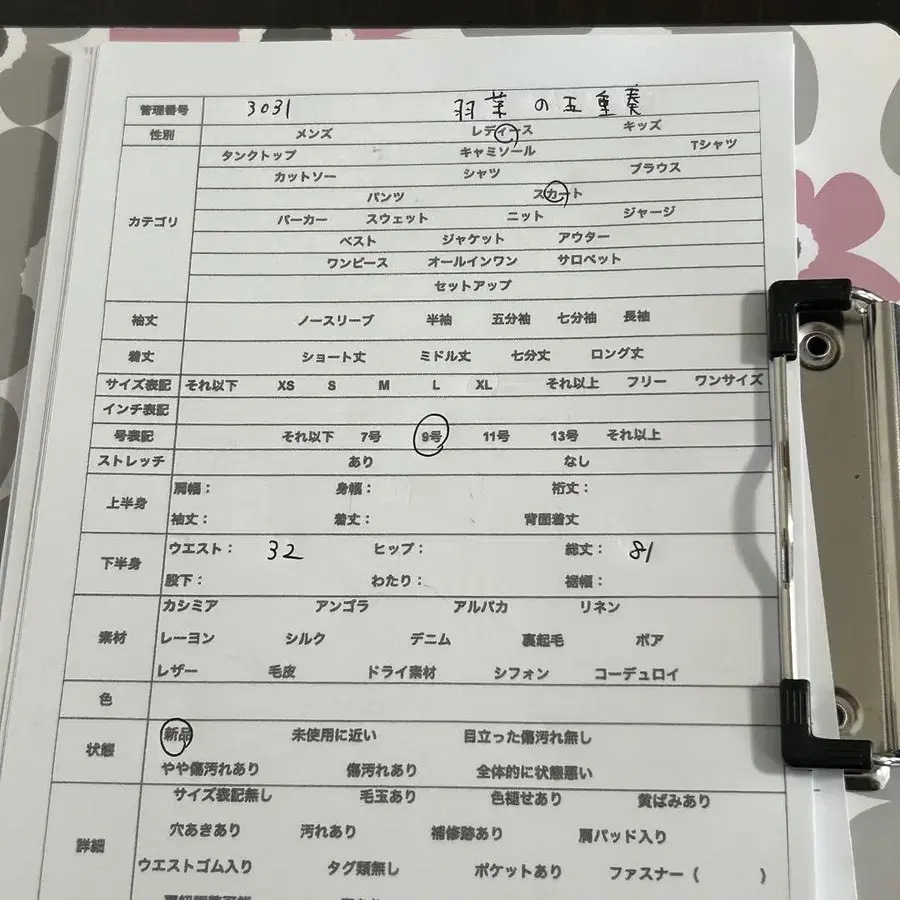 管理番号 3031 羽菜の五重奏
性別 メンズ レディース キッズ
カテゴリ タンクトップ キャミソール Tシャツ
カットソー シャツ ブラウス
パンツ スカート
パーカー スウェット ニット ジャージ
ベスト ジャケット アウター
ワンピース オールインワン サロペット
セットアップ
袖丈 ノースリーブ 半袖 五分袖 七分袖 長袖
着丈 ショート丈 ミドル丈 七分丈 ロング丈
サイズ表記 それ以下 XS S M L XL それ以上 フリー ワンサイズ
インチ表記
号表記 それ以下 7号 9号 11号 13号 それ以上
ストレッチ あり なし
上半身 肩幅： 身幅： 裄丈：
袖丈： 着丈： 背面着丈
下半身 ウエスト： 32 ヒップ： 総丈： 81
股下： わたり： 裾幅：
素材 カシミア アンゴラ アルパカ リネン
レーヨン シルク デニム 裏起毛 ボア
レザー 毛皮 ドライ素材 シフォン コーデュロイ
色
状態 新品 未使用に近い 目立った傷汚れ無し
やや傷汚れあり 傷汚れあり 全体的に状態悪い
詳細 サイズ表記無し 毛玉あり 色褪せあり 黄ばみあり
穴あきあり 汚れあり 補修跡あり 肩パッド入り
ウエストゴム入り タグ類無し ポケットあり ファスナー（ ）